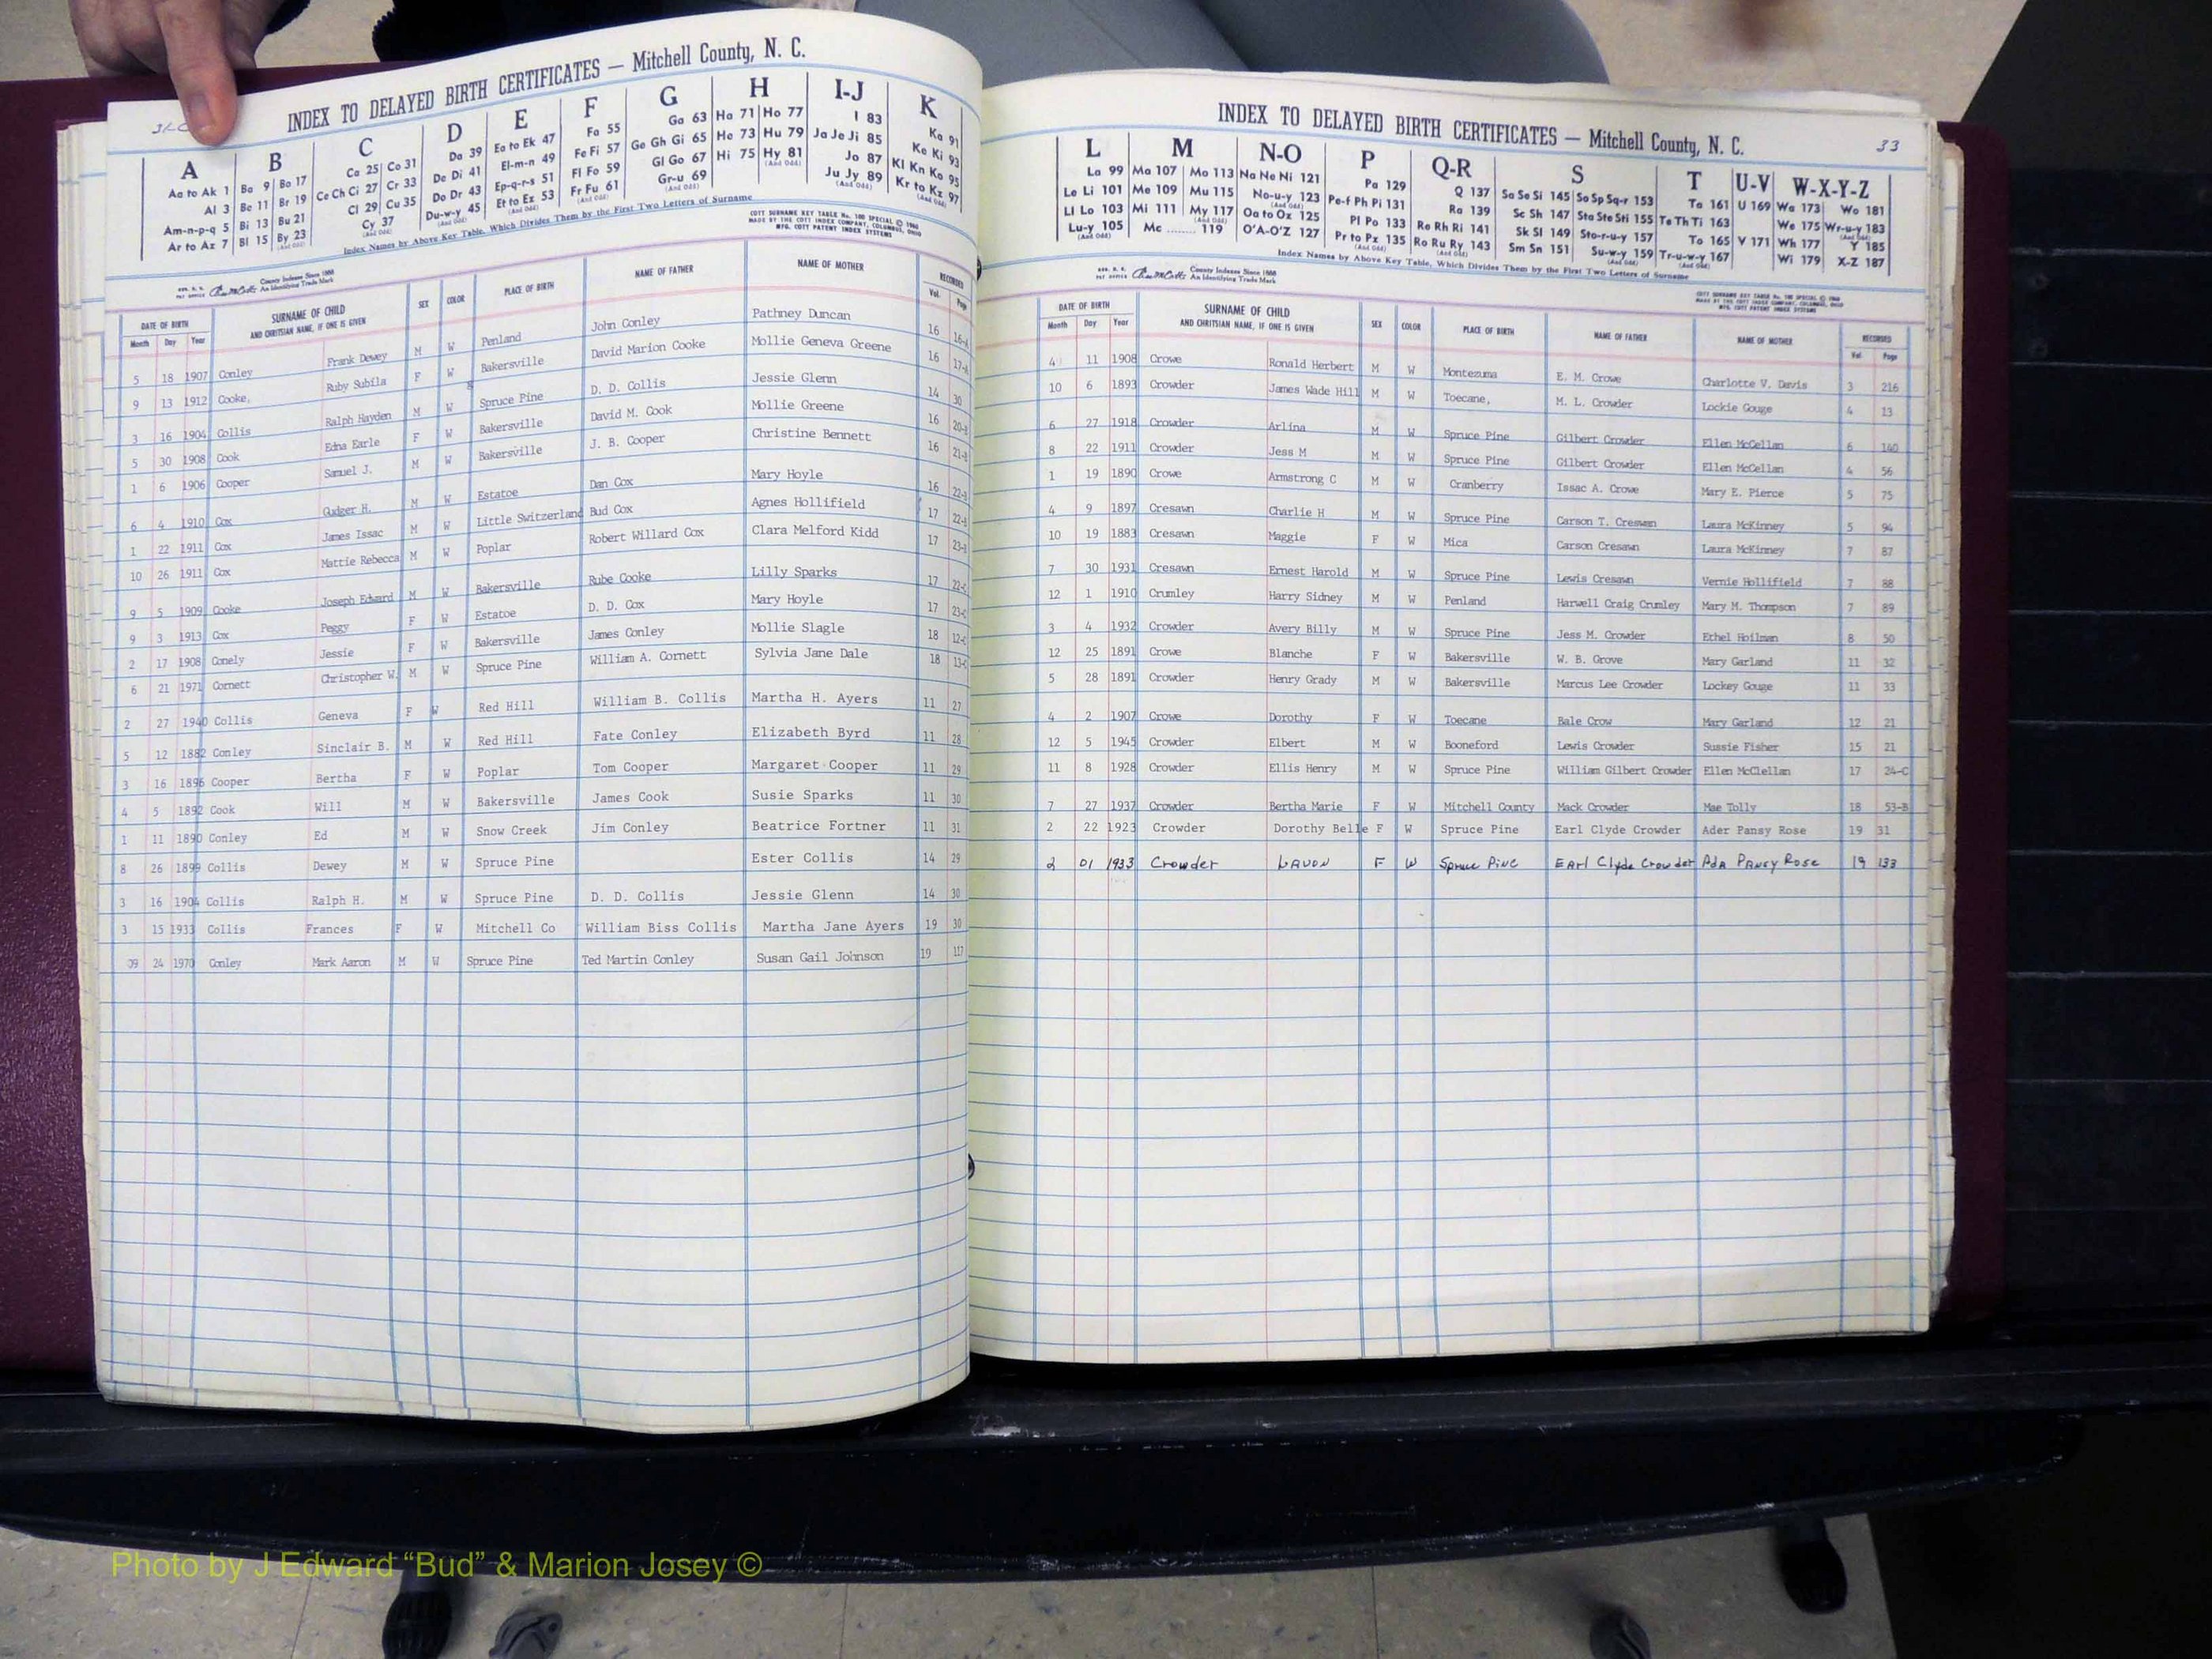 INDEX TO DELAYED BIRTH CERTIFICATES — Mitchell County, N. C.
A B C D E F G H I-J K
Aa to Ak 1 Ba 9 Bo 17 Ca 25 Co 31 Da 39 Ea to Ek 47 Fa 55 Ga 63 Ha 71 Ho 77 I 83 Ka 91
Al 3 Be 11 Br 19 Ce Ch Ci 27 Cr 33 De Di 41 El-m-n 49 Fe Fi 57 Ge Gh Gi 65 He 73 Hu 79 Ja Je Ji 85 Ke Ki 93
Am-n-p-q 5 Bi 13 Bu 21 Cl 29 Cu 35 Do Dr 43 Ep-q-r-s 51 Fl Fo 59 Gl Go 67 Hi 75 Hy 81 Jo 87 Kl Kn Ko 95
Ar to Az 7 Bl 15 By 23 Cy 37 Du-w-y 45 Et to Ez 53 Fr Fu 61 Gr-u 69 Ju Jy 89 Kr to Kz 97
Index Names by Above Key Table, Which Divides Them by the First Two Letters of Surname
COTT SURNAME KEY TABLE No. 100 SPECIAL © 1960
MADE BY THE COTT INDEX COMPANY, COLUMBUS, OHIO
MFG. COTT PATENT INDEX SYSTEMS
County Indexes Since 1888
An Identifying Trade Mark
DATE OF BIRTH SURNAME OF CHILD SEX COLOR PLACE OF BIRTH NAME OF FATHER NAME OF MOTHER RECORDED
Month Day Year AND CHRITSIAN NAME, IF ONE IS GIVEN Vol. Page
5 18 1907 Conley Frank Dewey M W Penland John Conley Pathney Duncan 16
9 13 1912 Cooke, Ruby Subila F W Bakersville David Marion Cooke Mollie Geneva Greene 16
3 16 1904 Collis Ralph Hayden M W Spruce Pine D. D. Collis Jessie Glenn 14 30
5 30 1908 Cook Edna Earle F W Bakersville David M. Cook Mollie Greene 16
1 6 1906 Cooper Samuel J. M W Bakersville J. B. Cooper Christine Bennett 16
6 4 1910 Cox Gudger H. M W Estatoe Dan Cox Mary Hoyle 16
1 22 1911 Cox James Issac M W Little Switzerland Bud Cox Agnes Hollifield 17
10 26 1911 Cox Mattie Rebecca M W Poplar Robert Willard Cox Clara Melford Kidd 17
9 5 1909 Cooke Joseph Edward M W Bakersville Rube Cooke Lilly Sparks 17
9 3 1913 Cox Peggy F W Estatoe D. D. Cox Mary Hoyle 17
2 17 1908 Conely Jessie F W Bakersville James Conley Mollie Slagle 18
6 21 1971 Cornett Christopher W. M W Spruce Pine William A. Cornett Sylvia Jane Dale 18
2 27 1940 Collis Geneva F W Red Hill William B. Collis Martha H. Ayers 11 27
5 12 1882 Conley Sinclair B. M W Red Hill Fate Conley Elizabeth Byrd 11 28
3 16 1896 Cooper Bertha F W Poplar Tom Cooper Margaret Cooper 11 29
4 5 1892 Cook Will M W Bakersville James Cook Susie Sparks 11 30
1 11 1890 Conley Ed M W Snow Creek Jim Conley Beatrice Fortner 11 31
8 26 1899 Collis Dewey M W Spruce Pine Ester Collis 14 29
3 16 1904 Collis Ralph H. M W Spruce Pine D. D. Collis Jessie Glenn 14 30
3 15 1933 Collis Frances F W Mitchell Co William Biss Collis Martha Jane Ayers 19 30
09 24 1970 Conley Mark Aaron M W Spruce Pine Ted Martin Conley Susan Gail Johnson 19 117
INDEX TO DELAYED BIRTH CERTIFICATES — Mitchell County, N. C. 33
L M N-O P Q-R S T U-V W-X-Y-Z
La 99 Ma 107 Mo 113 Na Ne Ni 121 Pa 129 Q 137 Sa Se Si 145 So Sp Sq-r 153 Ta 161 U 169 Wa 173 Wo 181
Le Li 101 Me 109 Mu 115 No-u-y 123 Pe-f Ph Pi 131 Ra 139 Sc Sh 147 Sta Ste Sti 155 Te Th Ti 163 We 175 Wr-u-y 183
Ll Lo 103 Mi 111 My 117 Oa to Ox 125 Pl Po 133 Re Rh Ri 141 Sk Sl 149 Sto-r-u-y 157 To 165 V 171 Wh 177 Y 185
Lu-y 105 Mc ........ 119 O'A-O'Z 127 Pr to Pz 135 Ro Ru Ry 143 Sm Sn 151 Su-w-y 159 Tr-u-w-y 167 Wi 179 X-Z 187
Index Names by Above Key Table, Which Divides Them by the First Two Letters of Surname
County Indexes Since 1888
An Identifying Trade Mark
COTT SURNAME KEY TABLE No. 100 SPECIAL © 1960
MADE BY THE COTT INDEX COMPANY, COLUMBUS, OHIO
MFG. COTT PATENT INDEX SYSTEMS
DATE OF BIRTH SURNAME OF CHILD SEX COLOR PLACE OF BIRTH NAME OF FATHER NAME OF MOTHER RECORDED
Month Day Year AND CHRITSIAN NAME, IF ONE IS GIVEN Vol. Page
4 11 1908 Crowe Ronald Herbert M W Montezuma E. M. Crowe Charlotte V. Davis 3 216
10 6 1893 Crowder James Wade Hill M W Toecane, M. L. Crowder Lockie Gouge 4 13
6 27 1918 Crowder Arlina M W Spruce Pine Gilbert Crowder Ellen McCellan 6 140
8 22 1911 Crowder Jess M M W Spruce Pine Gilbert Crowder Ellen McCellan 4 56
1 19 1890 Crowe Armstrong C M W Cranberry Issac A. Crowe Mary E. Pierce 5 75
4 9 1897 Cresawn Charlie H M W Spruce Pine Carson T. Creswan Laura McKinney 5 94
10 19 1883 Cresawn Maggie F W Mica Carson Cresawn Laura McKinney 7 87
7 30 1931 Cresawn Ernest Harold M W Spruce Pine Lewis Cresawn Vernie Hollifield 7 88
12 1 1910 Crumley Harry Sidney M W Penland Harwell Craig Crumley Mary M. Thompson 7 89
3 4 1932 Crowder Avery Billy M W Spruce Pine Jess M. Crowder Ethel Hoilman 8 50
12 25 1891 Crowe Blanche F W Bakersville W. B. Grove Mary Garland 11 32
5 28 1891 Crowder Henry Grady M W Bakersville Marcus Lee Crowder Lockey Gouge 11 33
4 2 1907 Crowe Dorothy F W Toecane Bale Crow Mary Garland 12 21
12 5 1945 Crowder Elbert M W Booneford Lewis Crowder Sussie Fisher 15 21
11 8 1928 Crowder Ellis Henry M W Spruce Pine William Gilbert Crowder Ellen McClellan 17 24-C
7 27 1937 Crowder Bertha Marie F W Mitchell County Mack Crowder Mae Tolly 18 53-B
2 22 1923 Crowder Dorothy Belle F W Spruce Pine Earl Clyde Crowder Ader Pansy Rose 19 31
2 01 1933 Crowder LAVON F W Spruce Pine EArl Clyde Crowder Ada Pansy Rose 19 133
Photo by J Edward “Bud” & Marion Josey ©